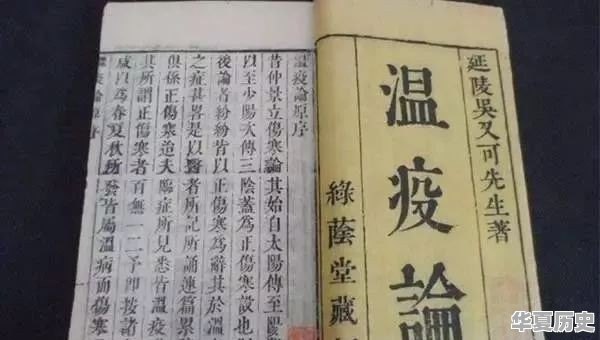 延陵吳又可先生著
温疫論
綠蔭堂藏
溫疫論原序
昔仲景立傷寒論其始自太陽傳至
以至少陽次傳三陰蓋為正傷寒設也
後論者紛紛皆以正傷寒為辭其於溫
之症甚畧是以醫者所記所誦連篇累
俱係正傷寒迨夫臨症所見悉皆溫疫
其所謂正傷寒者百無一二予即按諸
咸以為春夏秋所發皆屬溫病而傷寒
華夏历史